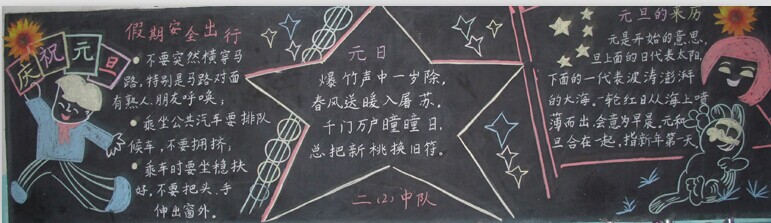 庆祝元旦
假期安全出行
不要突然横穿马
路,特别是马路对面
有熟人、朋友呼唤;
乘坐公共汽车要排队
候车,不要拥挤;
乘车时要坐稳扶
好,不要把头、手
伸出窗外。
元日
爆竹声中一岁除,
春风送暖入屠苏。
千门万户曈曈日,
总把新桃换旧符。
二(2)中队
元旦的来历
元是开始的意思,
旦上面的日代表太阳,
下面的一代表波涛澎湃
的大海。一轮红日从海上喷
薄而出,会意为早晨。元和
旦合在一起,指新年第一天